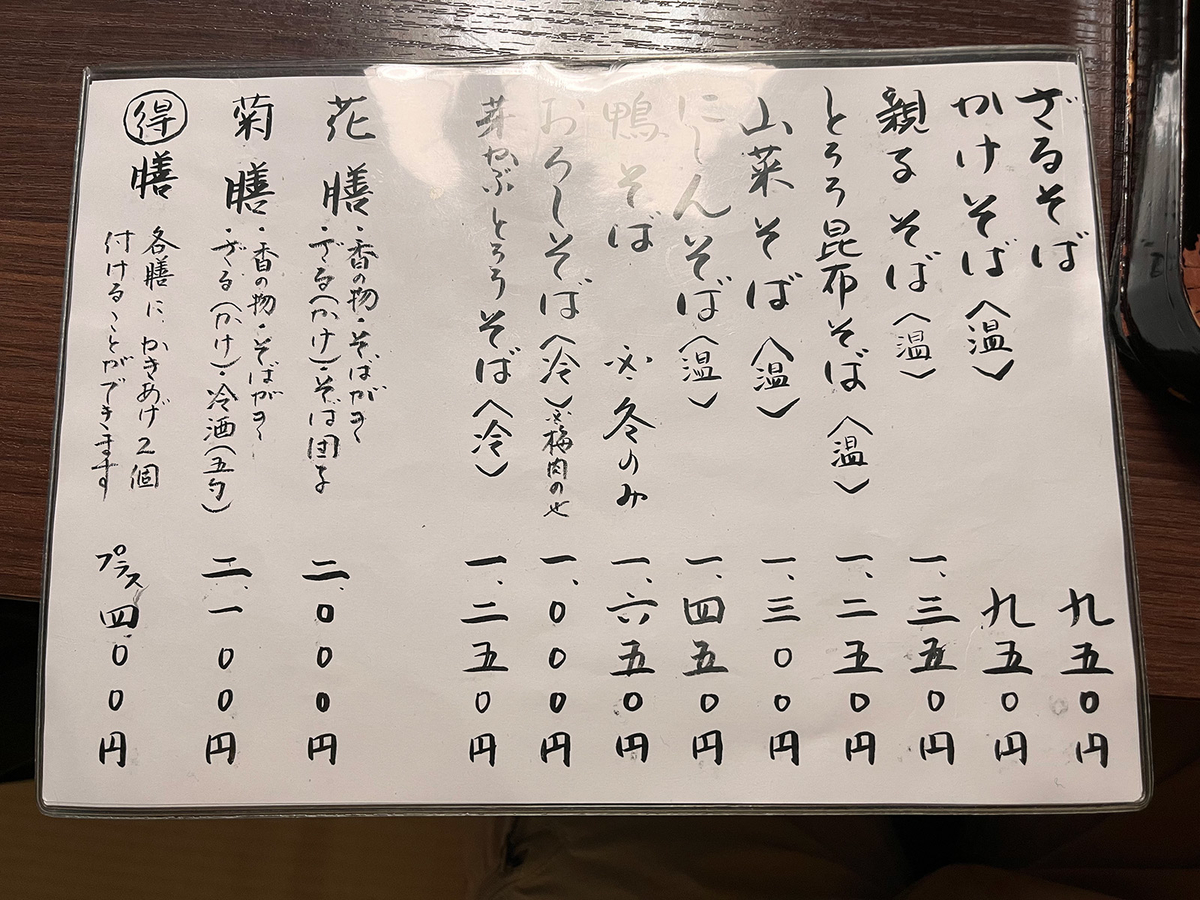 ざるそば 九五〇円
かけそば〈温〉 九五〇円
親るそば〈温〉 一、三五〇円
とろろ昆布そば〈温〉 一、二五〇円
山菜そば〈温〉 一、三〇〇円
にしんそば〈温〉 一、四五〇円
鴨そば ※冬のみ 一、六五〇円
おろしそば〈冷〉※梅肉のせ 一、〇〇〇円
芽かぶとろろそば〈冷〉 一、二五〇円
花膳 二、〇〇〇円
・香の物・そばがき
・ざる(かけ)・そば団子
菊膳 二、一〇〇円
・香の物・そばがき
・ざる(かけ)・冷酒(五勺)
得膳 プラス四〇〇円
各膳に、かきあげ2個
付けることができます